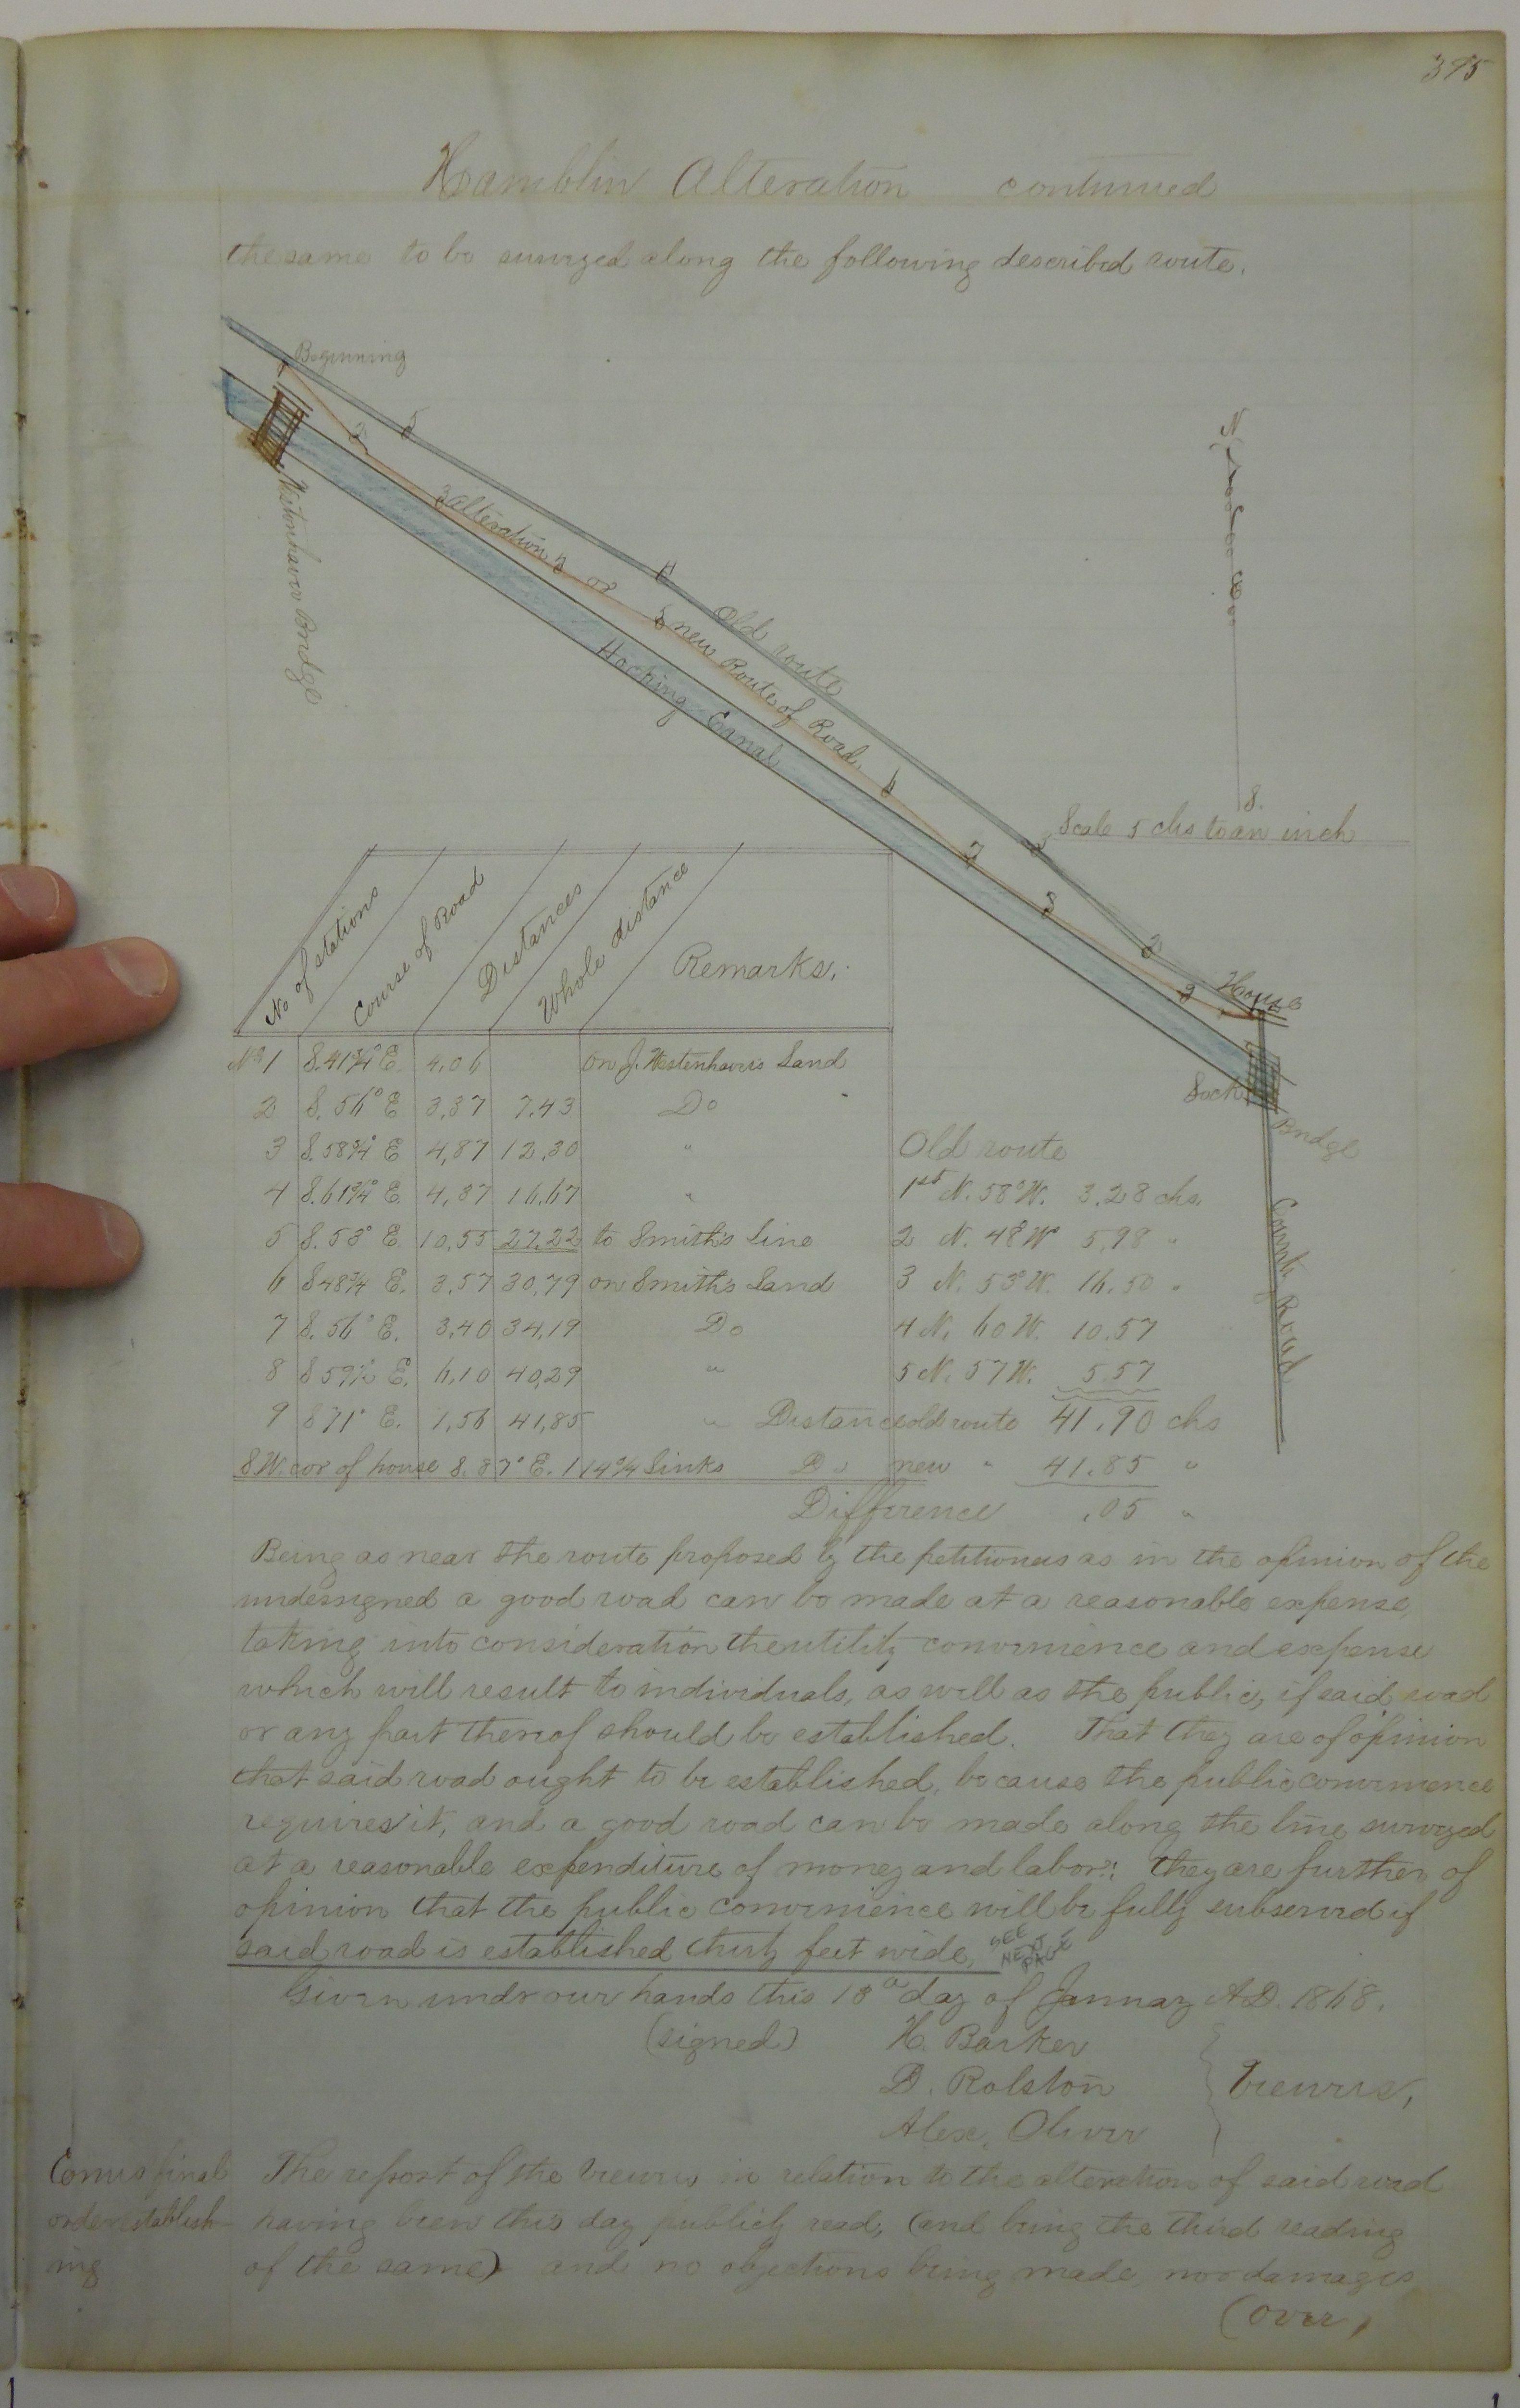 395
Hamblin Alteration continued
the same to be surveyed along the following described route.
Beginning
2
5
3
Alteration
4
or
4
5
new Route of Road.
Old route
Hocking Canal
Westenhaver Bridge
6
7
3
8
2
9
House
Lock
Bridge
County Road
N.
S.
Scale 5 chs to an inch
No of stations
Course of Road
Distances
Whole distance
Remarks.
No 1 S. 41 3/4° E. 4,06 on J. Westenhavers Land
2 S. 56° E 3,37 7.43 Do
3 S. 58 3/4° E 4,87 12,30 "
4 S. 61 3/4° E. 4,37 16,67 "
5 S. 53° E. 10,55 27.22 to Smith's line
6 S 48 3/4 E. 3,57 30,79 on Smith's Land
7 S. 56° E. 3,40 34,19 Do
8 S 59 1/2 E. 6,10 40,29 "
9 S 71° E. 1,56 41,85 "
S.W. cor of house S. 37° E. 1 14 3/4 links
Old route
1st N. 58° W. 3.28 chs.
2 N. 48° W 5,98 "
3 N. 53° W. 16.50 "
4 N. 60 W. 10.57
5 N. 57 W. 5.57
Distance old route 41.90 chs
Do new " 41.85 "
Difference .05 "
Being as near the route proposed by the petitioners as in the opinion of the
undersigned a good road can be made at a reasonable expense,
taking into consideration the utility convenience and expense
which will result to individuals, as well as the public, if said road
or any part thereof should be established. That they are of opinion
that said road ought to be established, because the public convenience
requires it, and a good road can be made along the line surveyed
at a reasonable expenditure of money and labor: they are further of
opinion that the public convenience will be fully subserved if
said road is established thirty feet wide, SEE NEXT PAGE
Given under our hands this 18th day of January A.D. 1868.
(signed) H. Barker
D. Rolston
Alex. Oliver
Viewers,
Comrs final
order establish-
ing
The report of the viewers in relation to the alteration of said road
having been this day publicly read, (and being the third reading
of the same) and no objections being made, nor damages
(over)